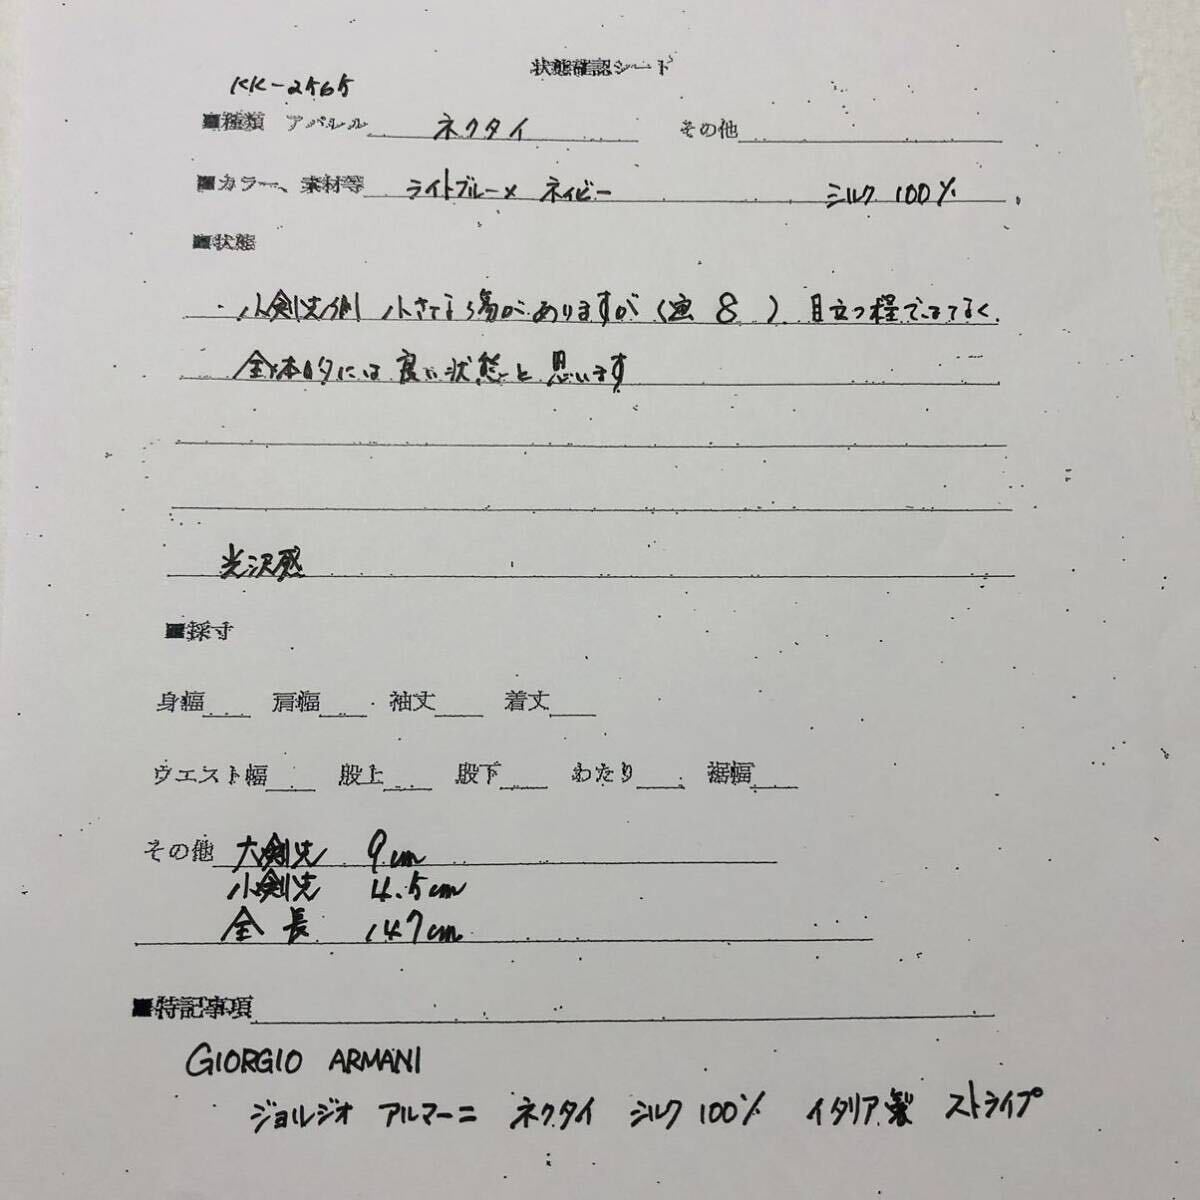 状態確認シート
KK-2565
■種類 アパレル ネクタイ その他
■カラー、素材等 ライトブルー× ネイビー シルク 100%
■状態
・小剣先側 小さな傷がありますが(画 8 ) 目立つ程ではなく
全体的には良い状態と思います
光沢感
■採寸
身幅 肩幅 袖丈 着丈
ウエスト幅 股上 股下 わたり 裾幅
その他 大剣先 9cm
小剣先 4.5cm
全長 147cm
■特記事項
GIORGIO ARMANI
ジョルジオ アルマーニ ネクタイ シルク 100% イタリア製 ストライプ